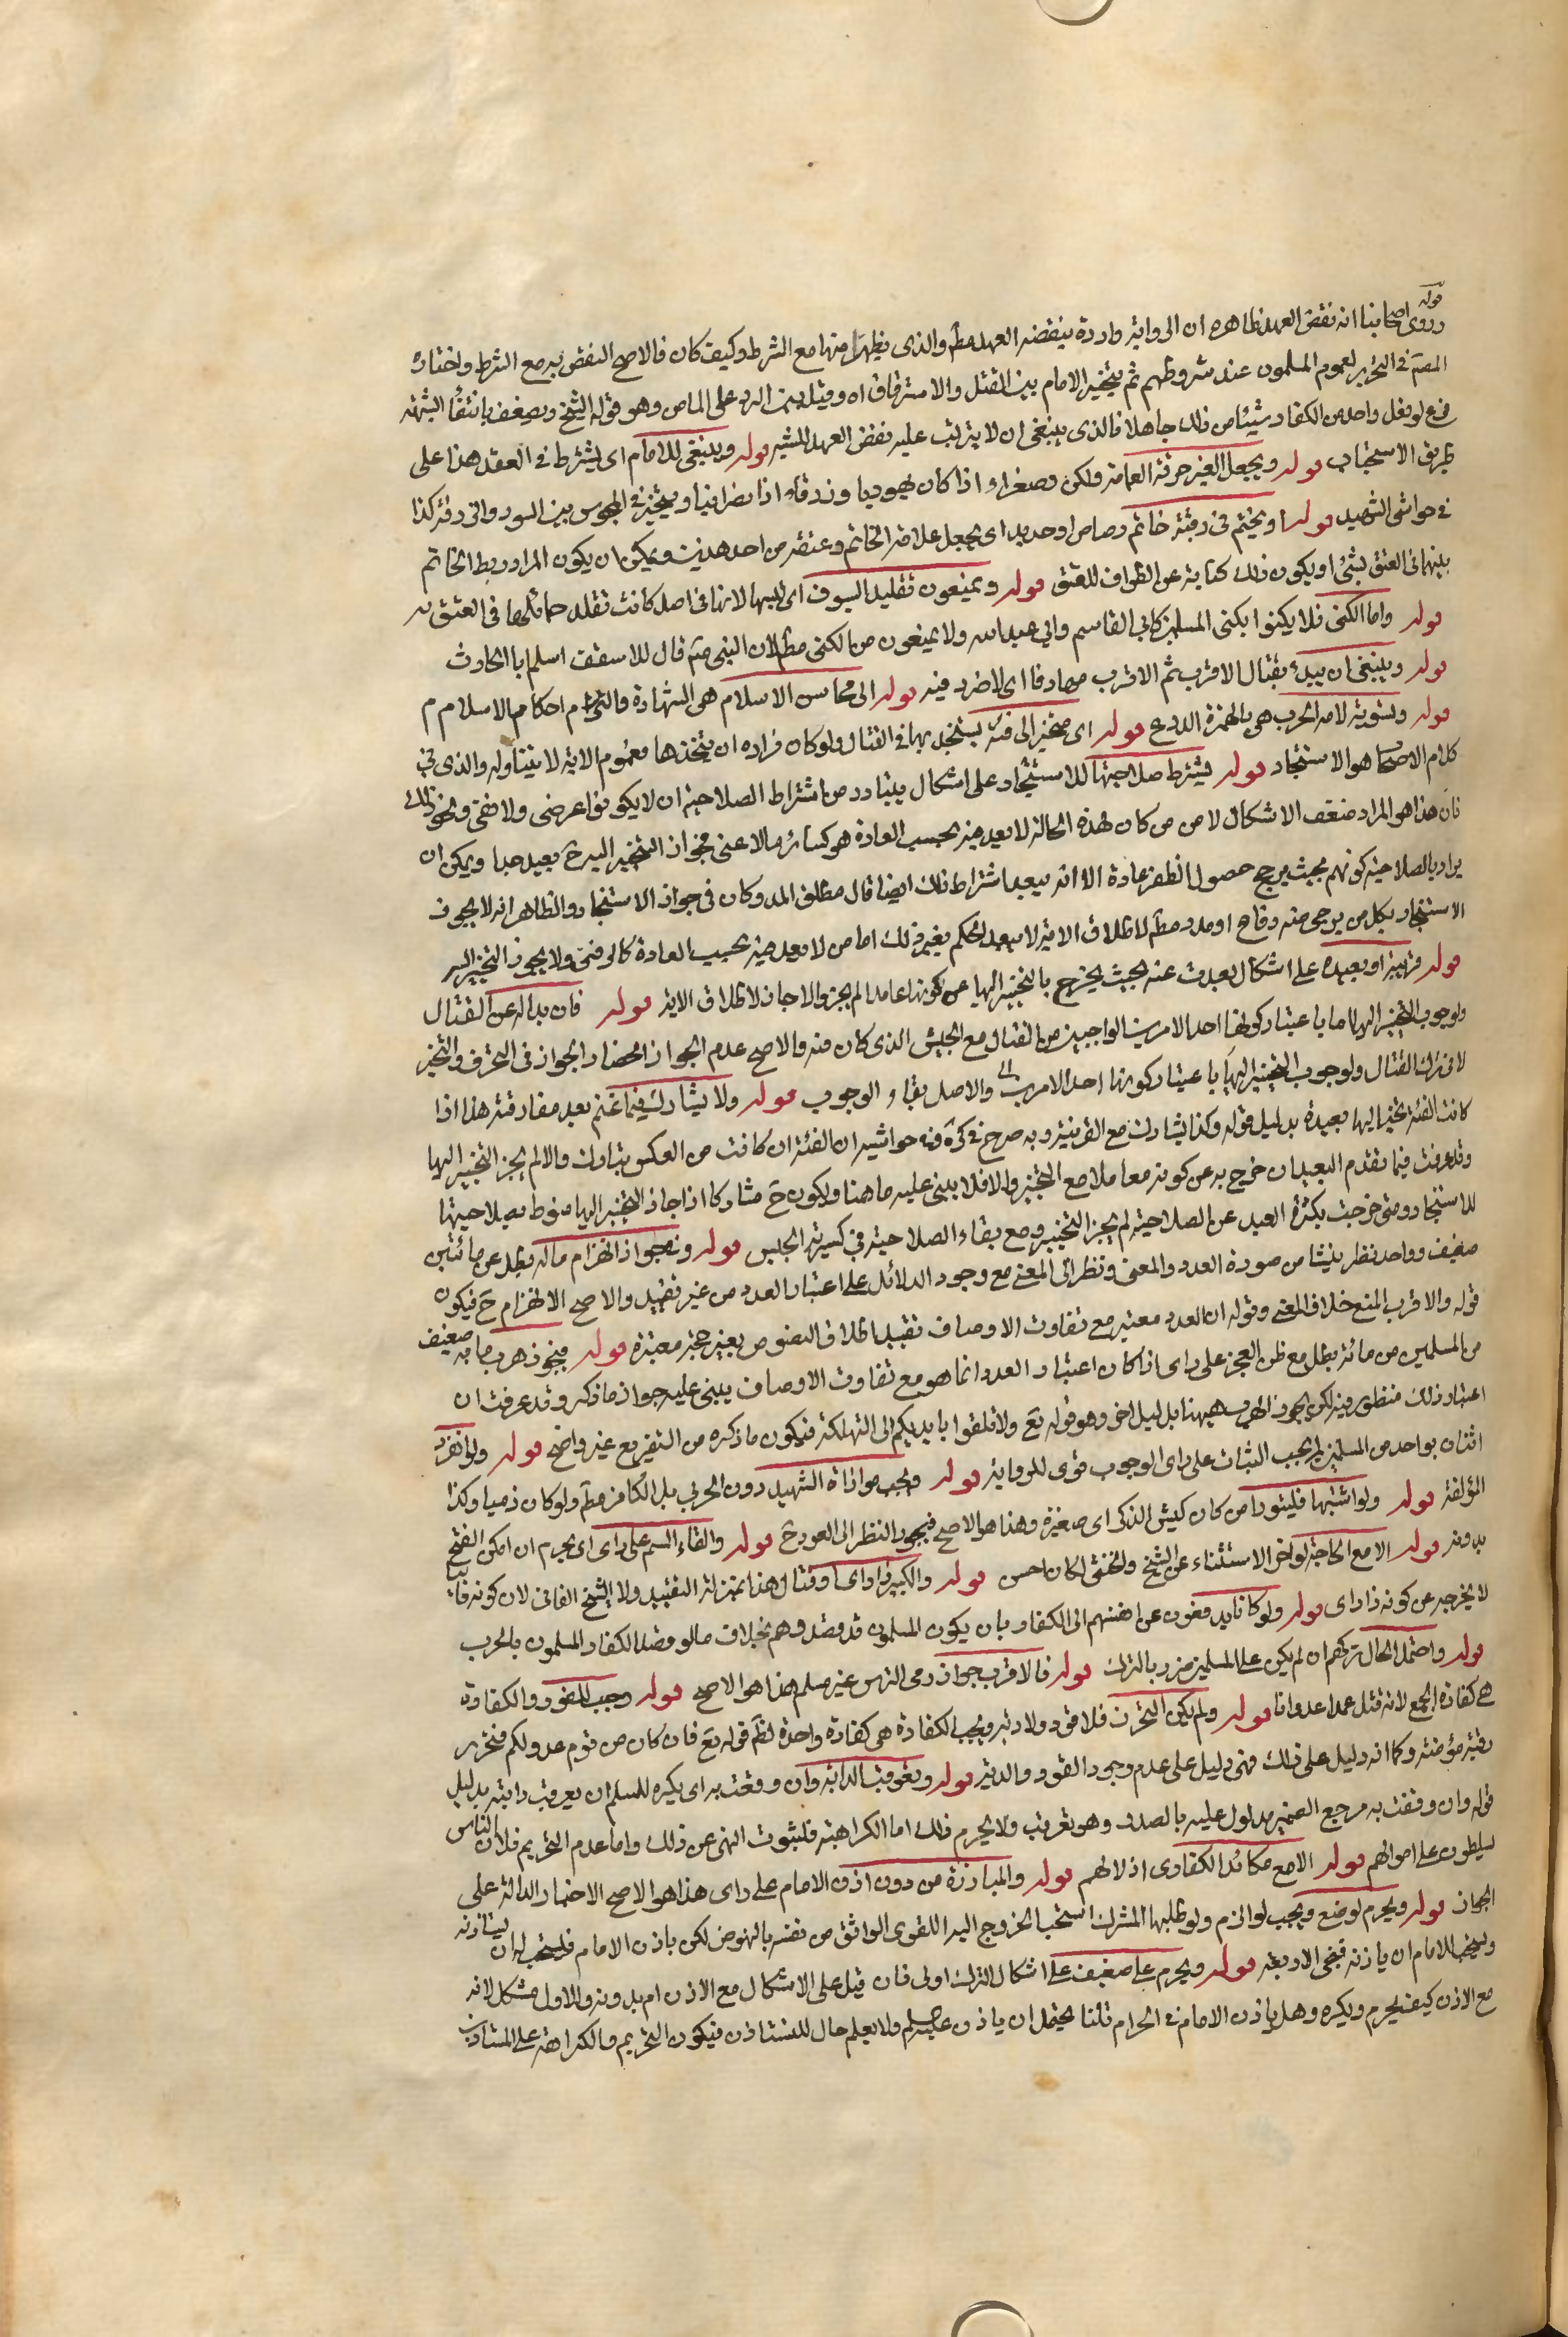 قوله
وروى اصحابنا انه نقض العهد ظاهره ان الرواية واردة بنقضه العهد مطلقا والذي يظهر منها مع الشرط وكيف كان فالاصح النقض به مع الشرط واختاره
المصنف في التحرير لعموم المسلمون عند شروطهم ثم يتخير الامام بين القتل والاسترقاق اه وقيل يجب الرد على المامن وهو قوله الشيخ ويضعف بانتفاء الشبهة
فرع لو فعل واحد من الكفار شيئا من ذلك جاهلا فالذي ينبغي ان لا يترتب عليه نقض العهد للشبهة قوله وينبغي للامام اى يشترط في العقد هذا على
طريق الاستحباب قوله ويجعل الغير حرقة العمامة ولكن وصغراء اذا كان يهوديا وزرقاء اذا نصرانيا ويتخير في المجوس بين السود والى رقة كذا
في حواشي الشهيد قوله او يختم في رقبته خاتم رصاص او حديد اى يجعل علامة الخاتم وعنقه من احد هذين ويمكن ان يكون المراد ربط الخاتم
بينهما في العنق بشئ او يكون ذلك كناية عن الطواف للعنق قوله ويمنعون تقليد السيوف اى لبسها لانها في اصل كانت تقلد حمائلها في العنق
قوله واما الكنى فلا يكنوا بكنى المسلمين كابي القاسم وابي عبد الله ولا يمنعون من الكنى مطلقا لان النبي ص قال للاسقف اسلم يا ابا الحارث
قوله وينبغي ان يبدء بقتال الاقرب ثم الاقرب مهادفا اى لا ضرر فيه قوله الى محاسن الاسلام هى الشهادة والتزام احكام الاسلام
قوله وتسوية لامة الحرب هي بالهمزة الدرع قوله اى متحيز الى فئة يستنجد بها في القتال ولو كان فراده ان يتخذها فعموم الاية لا يتناوله والذي في
كلام الاصحاب هو الاستنجاد قوله فيشترط صلاحيتها للاستنجاد على اشكال يتبادر من اشتراط الصلاحية ان لا يكونوا عرضى ولا ضعفى ونحو ذلك
فان هذا هو المراد ضعف الاشكال لان من كان بهذه الحالة لا يعد فئة بحسب العادة هو كسائر ما لا عنى فجواز التحيز اليه ح بعيد جدا ويمكن ان
يراد بالصلاحية كونهم بحيث يرجح حصول الظفر عادة الا انه يبعد اشتراط ذلك ايضا قال مطلق المدد كان في جواز الاستنجاد والظاهر انه لا يجوز
الاستنجاد بكل من يرجى منه دفاع او مدد مطلقا لاطلاق الاية لا يبعد الحكم بغير ذلك اما من لا يعد فئة بحسب العادة كالرضى ولا يجوز التحيز اليه
قوله قريبة او بعيدة على اشكال بعدت عنه بحيث يخرج بالتحيز اليها عن كونه عاملا لم يجز والا جاز لاطلاق الاية قوله فان بدا له عن القتال
ولوجوب التحيز اليها اما باعتبار كونها احد الامرين الواجبين من القتال مع الجيش الذي كان منه فالاصح عدم الجواز الحصار الجواز في التحرف والتحيز
لا في ترك القتال ولوجوب التحيز اليها باعتبار كونها احد الامرين والاصل بقاء الوجوب قوله ولا يشارك فيما غنم بعد مفارقته هذا اذا
كانت الفئة تحيز اليها بعيدة بدليل قوله وكذا يشارك مع القريبة وبه صرح في كره وفي حواشيه ان الفئة ان كانت من العكس يشارك والا لم يجز التحيز اليها
وقد عرفت فيما تقدم البعيد ان خرج به عن كونه معاملا مع التحيز والا فلا يبنى عليه ما هنا ويكون ح مشاركا اذا جاز التحيز اليها منوط بصلاحيتها
للاستنجاد ومتى خرجت بكثرة البعد عن الصلاحية لم يجز التحيز ومع بقاء الصلاحية في كسرية الجلس قوله وفي جواز انهزام مائة بطل عن مائتين
ضعيف وواحد نظر ينشا من صورة العدد والمعنى ونظر الى المعنى مع وجود الدلائل على اعتبار العدد من غير تقييد والاصح الانهزام ح فيكون
قوله والاقرب المنع خلاف المعنى وقوله ان العدد معتبر مع تفاوت الاوصاف تقييد اطلاق النصوص بغير حجة معتبرة قوله فيجوز هرب مائة ضعيف
من المسلمين من مائة بطل مع ظن العجز على راى اذا كان اعتبار العدد انما هو مع تفاوت الاوصاف يبنى عليه جواز ما ذكر وقد عرفت ان
اعتبار ذلك منظور فيه لكن يجوز الهرب هيهنا بدليل اخر وهو قوله تع ولا تلقوا بايديكم الى التهلكة فيكون ما ذكره من التفريع غير واضح قوله ولو انفرد
اثنان بواحد من المسلمين لم يجب الثبات على راى الوجوب قوى للرواية قوله ويجب مواراة الشهيد دون الحربي بل الكافر مطلقا ولو كان ذميا وكذا
المؤلفة قوله ولو اشتبها فليوار من كان كيش الذكر اى صغيره وهذا هو الاصح فيجوز النظر الى العورة ح قوله والقاء السم على راى اى يحرم ان امكن الفتح
بدونه قوله الا مع الحاجة لو اخر الاستثناء عن الشيخ والخنثى لكان احسن قوله والكبير فراى او قتال هذا بمنزلة التقييد ولا الشيخ الفاني لان كونه فانيا
لا يخرجه عن كونه ذا راى قوله ولو كانا يدفعون عن انفسهم الى الكفار بان يكون المسلمون قد قصدوهم بخلاف ما لو قصد الكفار المسلمون بالحرب
قوله واحتمل الحال تركهم ان لم يكن على المسلمين ضرر بالترك قوله فالاقرب جواز رمي الترس غير مسلم هذا هو الاصح قوله وجب القود والكفارة
هي كفارة الجمع لانه قتل عمدا عدوانا قوله ولم يكن التحرز فلا قود ولا دية ويجب الكفارة هى كفارة واحدة لظم قوله تع فان كان من قوم عدو لكم فتحرير
رقبة مؤمنة وكما انه دليل على ذلك فهى دليل على عدم وجود القود والدية قوله وتعرقب الدابة وان وقفت به اى يكره للمسلم ان يعرقب دابته بدليل
قوله وان وقفت به مرجع الضمير مدلول عليه بالصدر وهو تعرقب ولا يحرم ذلك اما الكراهية فلثبوت النهي عن ذلك واما عدم التحريم فلان الناس
مسلطون على اموالهم قوله الا مع مكائد الكفارى اذلالهم قوله والمبارزة من دون اذن الامام على راى هذا هو الاصح الاخبار الدالة على
الجواز قوله ويحرم لو منع ويجب لو الزم ولو طلبها المشرك استحب الخروج اليه اللقوى الواثق من نفسه بالنهوض لكن باذن الامام فيستحب له ان يستاذنه
ويستحب للامام ان ياذنه فبقى الاربعة قوله ويحرم على ضعيف على اشكال الترك اولى فان قيل على الاشكال مع الاذن ام بدونه والاول مشكل لانه
مع الاذن كيف يحرم ويكره وهل ياذن الامام في الحرام قلنا يحتمل ان ياذن عليه السلم ولا يعلم حال المستاذن فيكون التحريم والكراهة على المستاذن